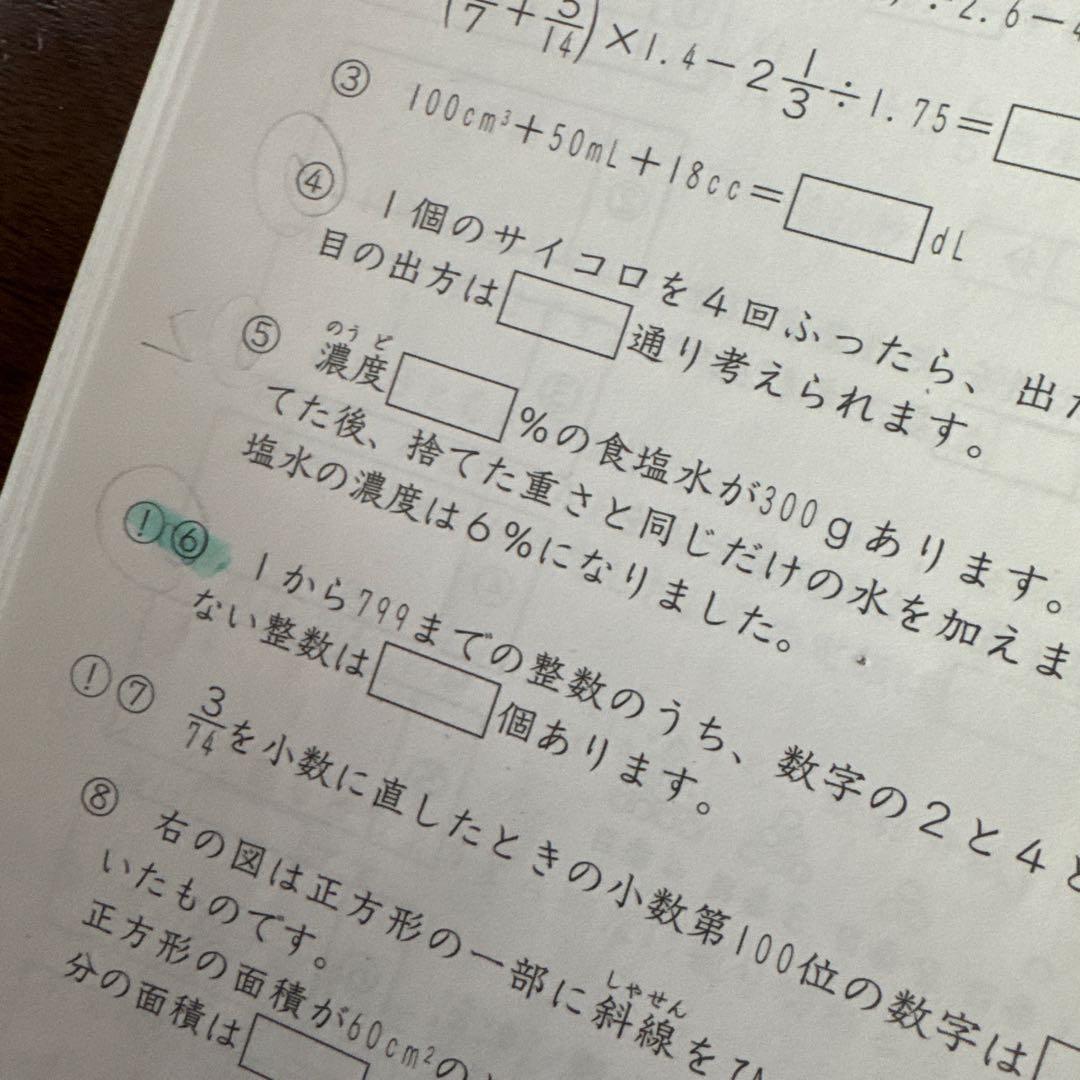 ÷2.6－4
(－/7＋5/14)×1.4－2 1/3÷1.75＝
③ 100cm³＋50mL＋18cc＝ dL
④ 1個のサイコロを4回ふったら、出た
目の出方は 通り考えられます。
⑤ 濃度 %の食塩水が300gあります。
のうど
てた後、捨てた重さと同じだけの水を加えま
塩水の濃度は6%になりました。
! ⑥ 1から799までの整数のうち、数字の2と4と
ない整数は 個あります。
! ⑦ 3/74を小数に直したときの小数第100位の数字は
⑧ 右の図は正方形の一部に斜線をひ
しゃせん
いたものです。
正方形の面積が60cm²の
分の面積は